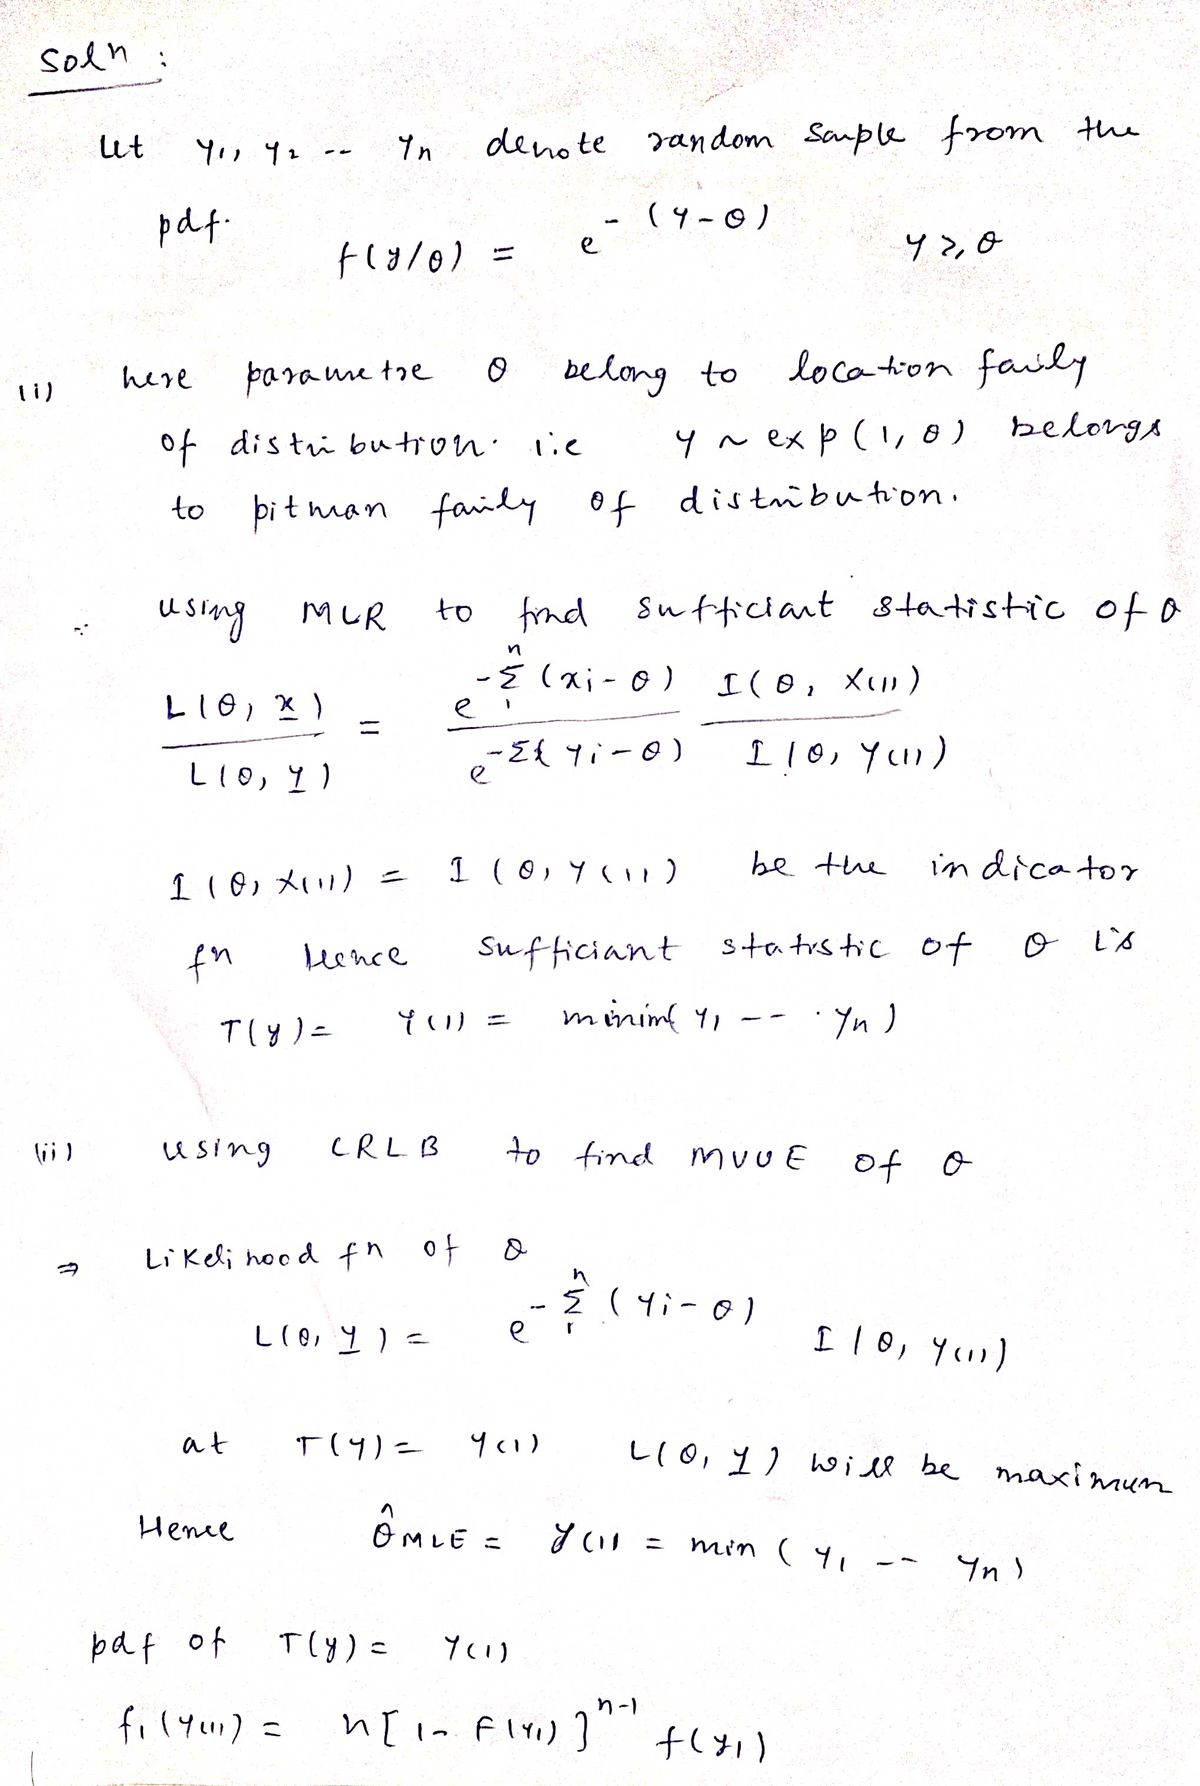 Soln :
Let y1, y2 -- yn denote random sample from the
pdf. f(y/θ) = e^-(y-θ) y ≥, θ
(i) here parametre θ belong to location faily
of distribution. i.e y ~ exp(1, θ) belongs
to pitman faily of distribution.
∴ using MLR to find sufficiant statistic of θ
L(θ, x) / L(θ, y) = e^-Σ(xi-θ) / e^-Σ{yi-θ) I(θ, X(1)) / I(θ, Y(1))
I(θ, X(1)) = I(θ, Y(1)) be the indicator
fn Hence sufficiant statistic of θ is
T(y) = Y(1) = minim{ y1 -- . yn)
(ii) using CRLB to find MVUE of θ
⇒ Likelihood fn of θ
L(θ, y) = e^-Σ(yi-θ) I(θ, y(1))
at T(y) = y(1) L(θ, y) will be maximum
Hence θ̂MLE = y(1) = min(y1 -- yn)
pdf of T(y) = Y(1)
f1(y(1)) = n[1- F(y1)]^n-1 f(y1)